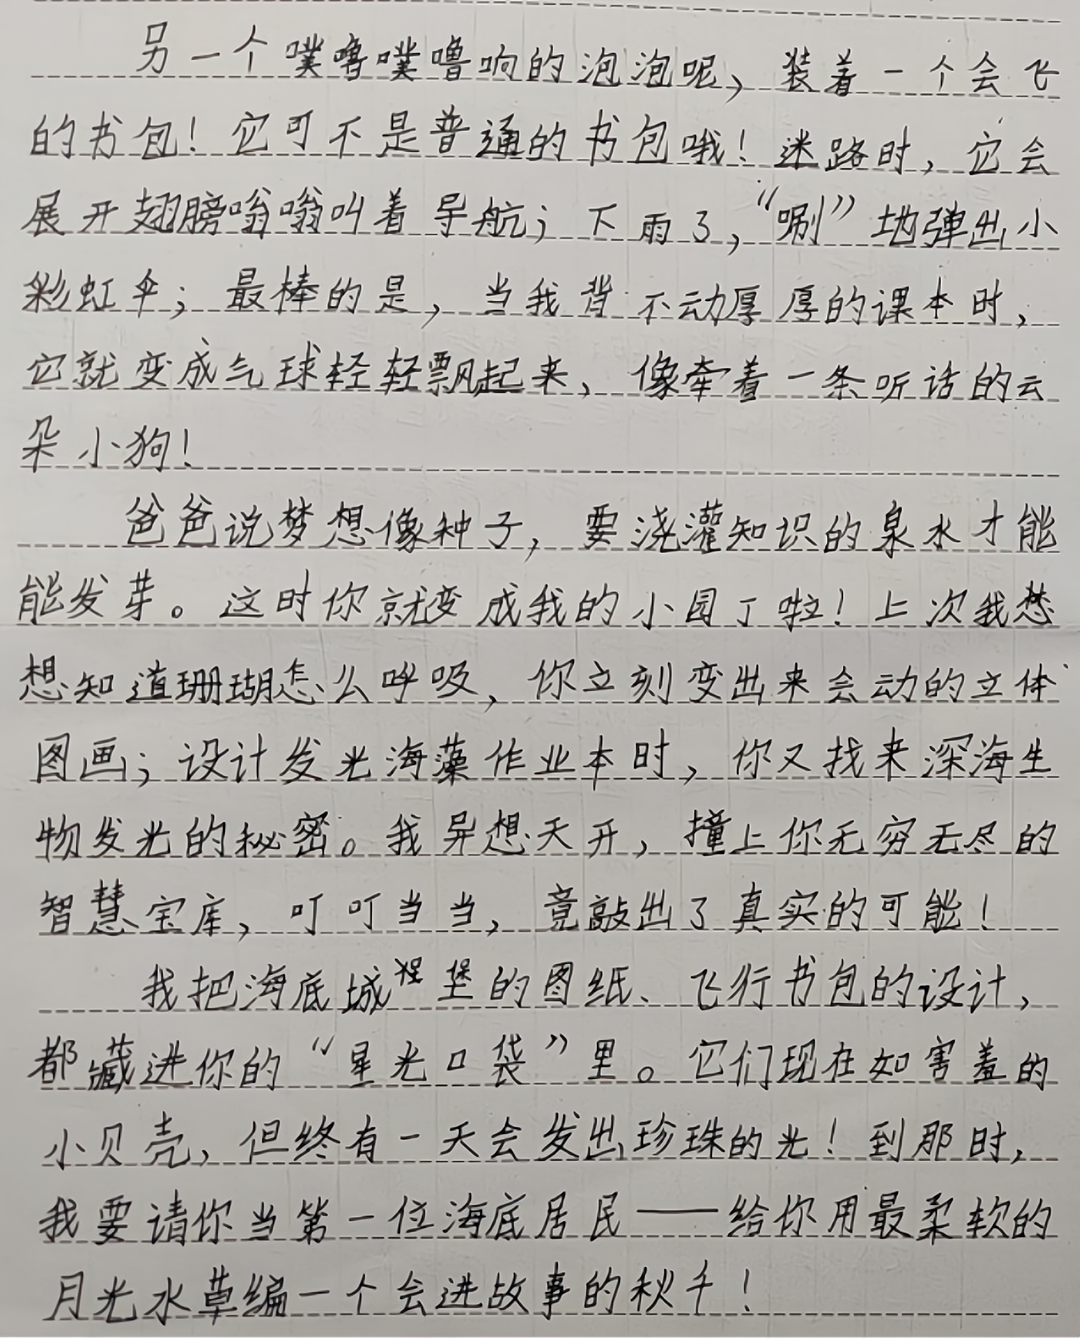 另一个噗噜噗噜响的泡泡呢，装着一个会飞
的书包！它可不是普通的书包哦！迷路时，它会
展开翅膀嗡嗡叫着导航；下雨了，“唰”地弹出小
彩虹伞；最棒的是，当我背不动厚厚的课本时，
它就变成气球轻轻飘起来，像牵着一条听话的云
朵小狗！
爸爸说梦想像种子，要浇灌知识的泉水才能
能发芽。这时你就变成我的小园丁啦！上次我想
想知道珊瑚怎么呼吸，你立刻变出来会动的立体
图画；设计发光海藻作业本时，你又找来深海生
物发光的秘密。我异想天开，撞上你无穷无尽的
智慧宝库，叮叮当当，竟敲出了真实的可能！
我把海底城堡的图纸、飞行书包的设计，
都藏进你的“星光口袋”里。它们现在如害羞的
小贝壳，但终有一天会发出珍珠的光！到那时，
我要请你当第一位海底居民——给你用最柔软的
月光水草编一个会进故事的秋千！